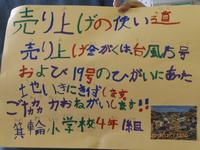 売り上げの使い道
売り上げ金がくは、台風15号
および19号のひがいにあった
地いきにきふします
ご協力おねがいします!!
箕輪小学校4年1組